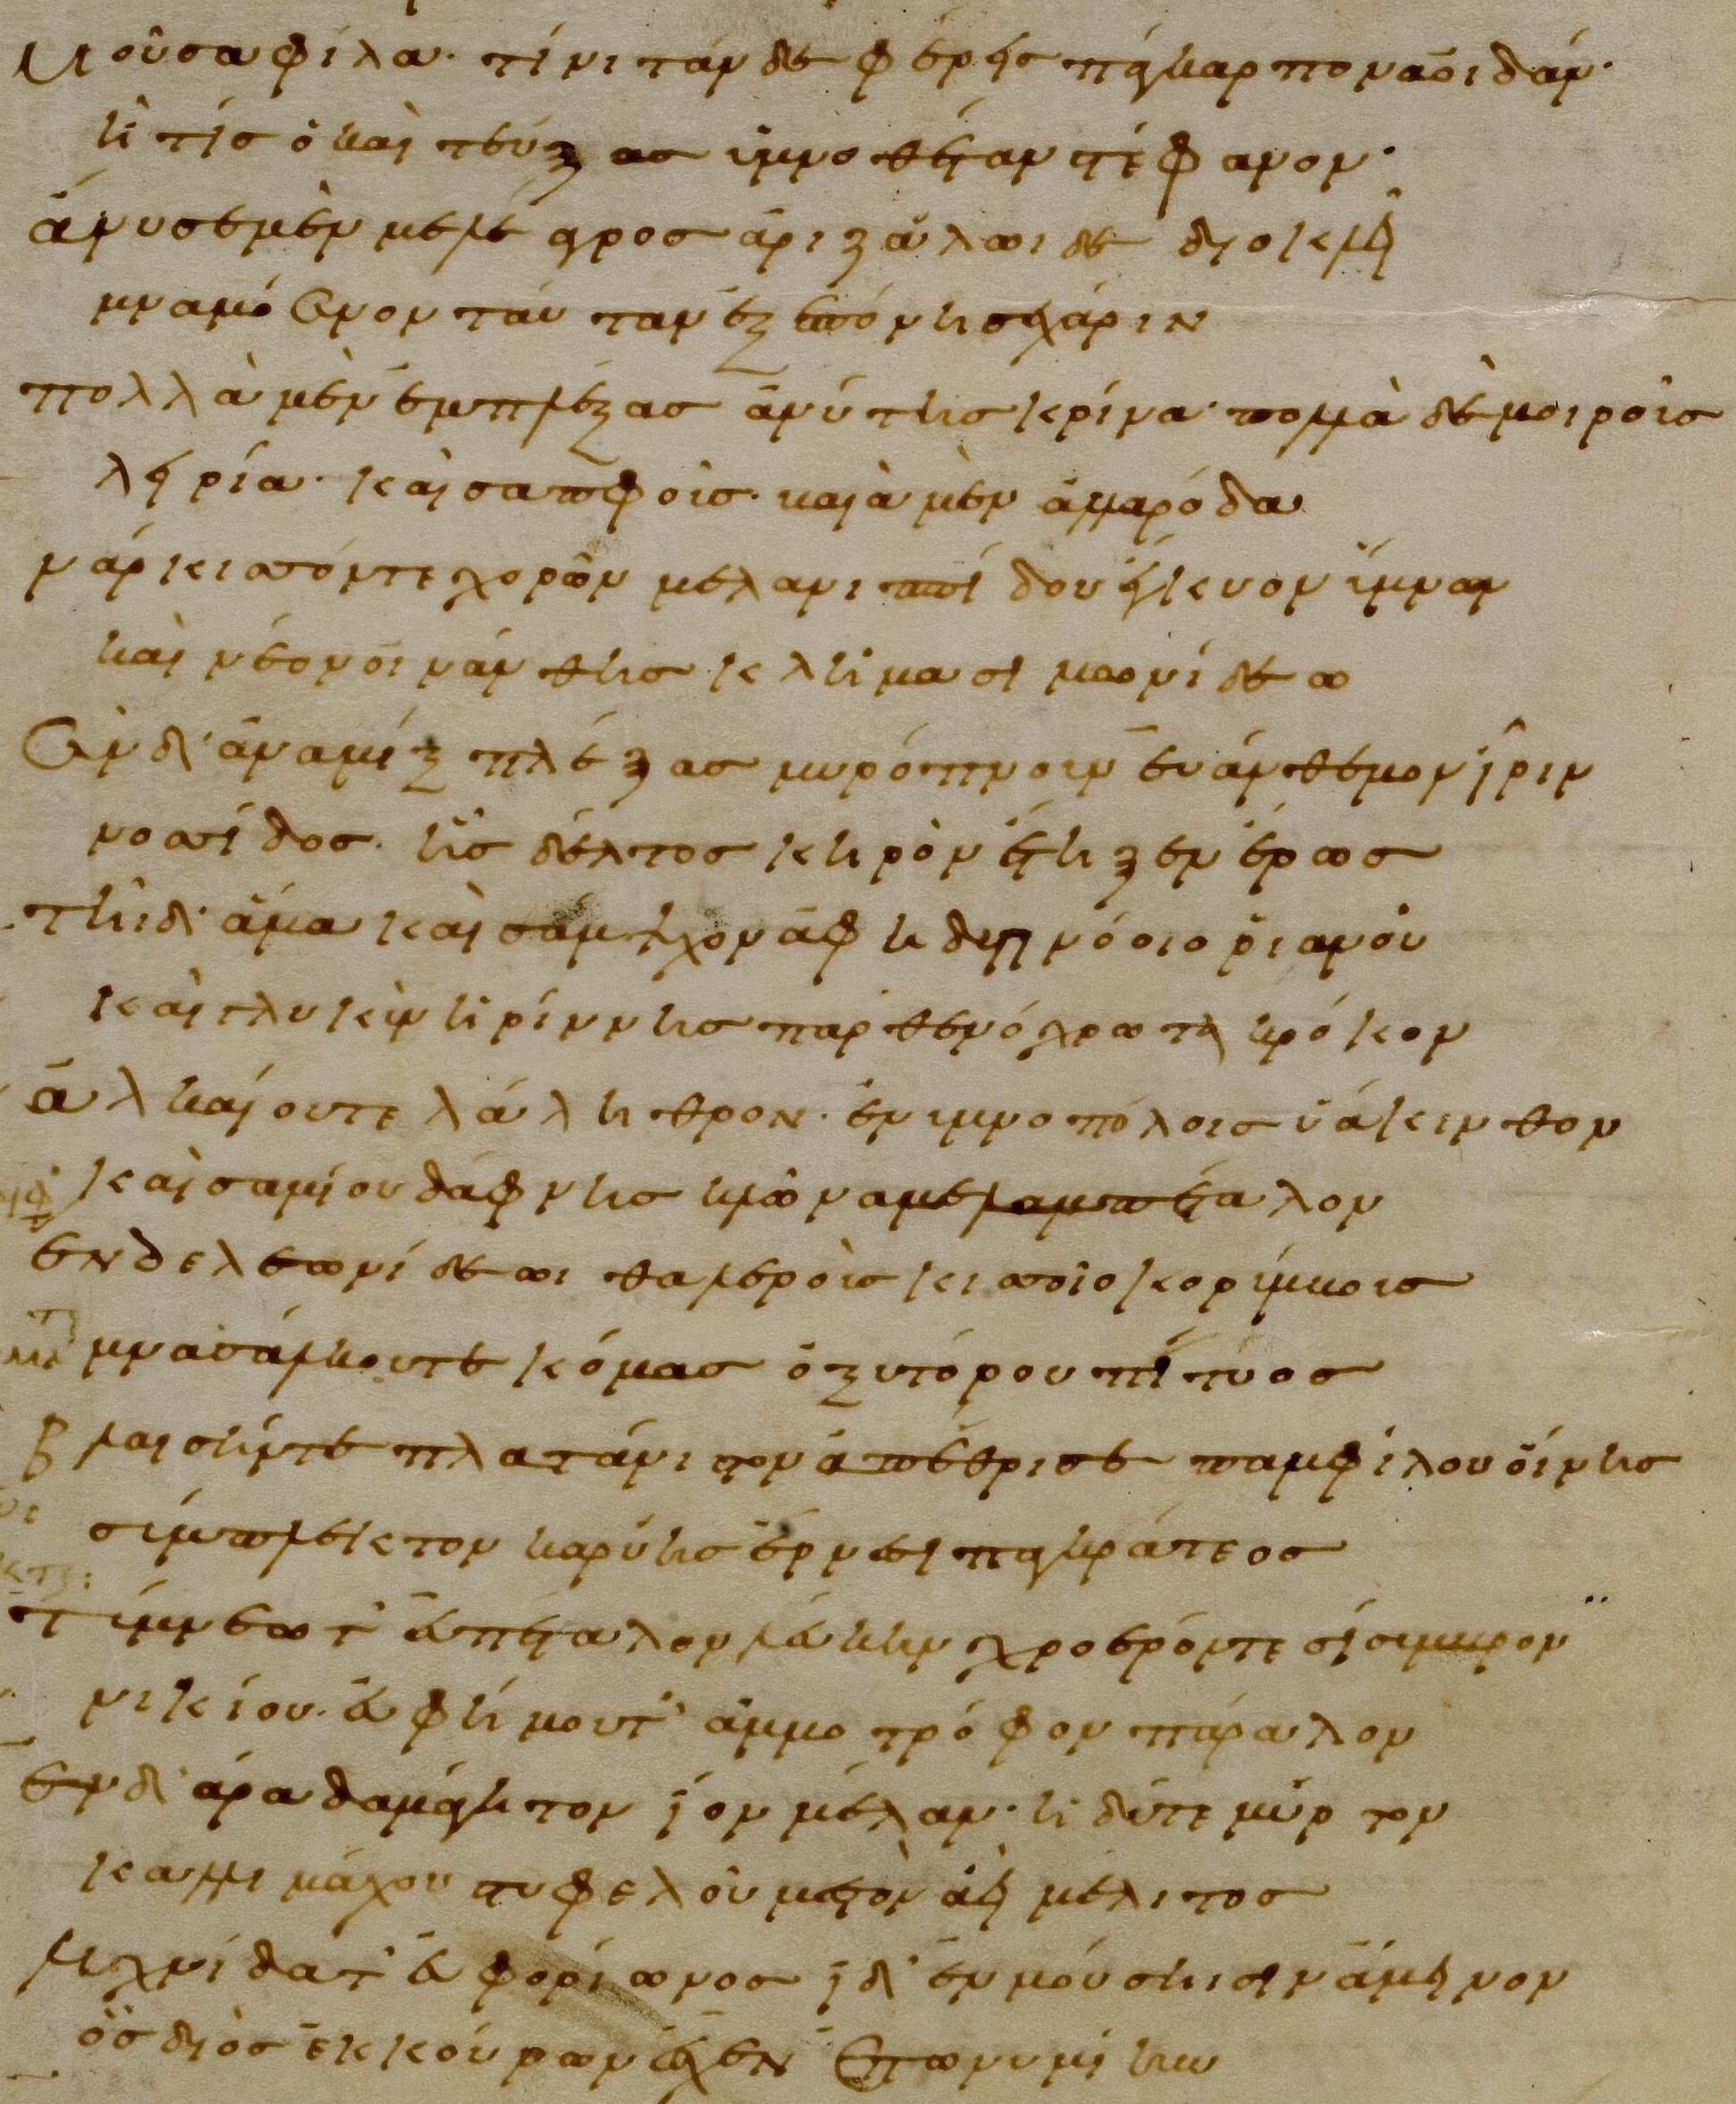 Μοῦσα φίλα· τίνι τάνδε φέρεις πάγκαρπον ἀοιδάν·
ἢ τίς ὁ καὶ τεύξας ὑμνοθετᾶν στέφανον·
ἄνυσε μὲν μελέαγρος ἀριζάλωι δὲ διοκλεῖ
μναμόσυνον ταύταν ἐξεπόνησε χάριν
πολλὰ μὲν ἐμπλέξας ἀνύτης κρίνα· πολλὰ δὲ μοιροῖς
λείρια· καὶ σαπφοῖς· βαιὰ μὲν ἀλλὰ ῥόδα
νάρκισσόν τε τορῶν μελανιππίδου ἔγκυον ὕμνων
καὶ νέον οἰνάνθης κλῆμα σιμωνίδεω
σὺν δ' ἀναμὶξ πλέξας μυρόπνουν εὐάνθεμον ἶριν
νοσσίδος· ἧς δέλτοις κηρὸν ἔτηξεν ἔρως
τῆι δ' ἅμα καὶ σάμψυχον ἀφ' ἡδυπνόοιο ῥιανοῦ
καὶ γλυκὺν ἠρίννης παρθενόχρωτα κρόκον
ἀλκαίου τε λάληθρον· ἐν ὑμνοπόλοις ὑάκινθον
καὶ σαμίου δάφνης κλῶνα μελαμπέταλον
ἐν δὲ λεωνίδεω θαλεροὺς κισσοῖο κορύμβους
μνασάλκου τε κόμας ὀξυτόρου πίτυος
βλαισήν τε πλατάνιστον ἀπέθρισε παμφίλου οἴνης
σύμπλεκτον καρύης ἔρνεσι παγκράτεος
τύμνεώ τ' εὐπέταλον λεύκην χλοερόν τε σίσυμβρον
νικίου· εὐφήμου τ' ἀμμότροφον πάραλον
ἐν δ' ἄρα δαμάγητον ἴον μέλαν· ἡδύ τε μύρτον
καλλιμάχου στυφελοῦ μεστὸν ἀεὶ μέλιτος
λυχνίδα τ' εὐφορίωνος ἰδ' ἐν μούσησιν ἄμεινον
ὃς διὸς ἐκ κούρων ἔσχεν ἐπωνυμίην